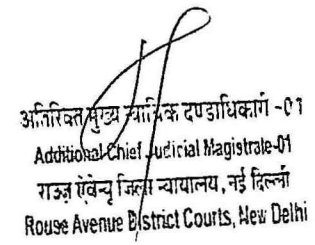 अतिरिक्त मुख्य न्यायिक दण्डाधिकारी -01
Additional Chief Judicial Magistrate-01
राऊज़ ऐवेन्यू जिला न्यायालय, नई दिल्ली
Rouse Avenue District Courts, New Delhi